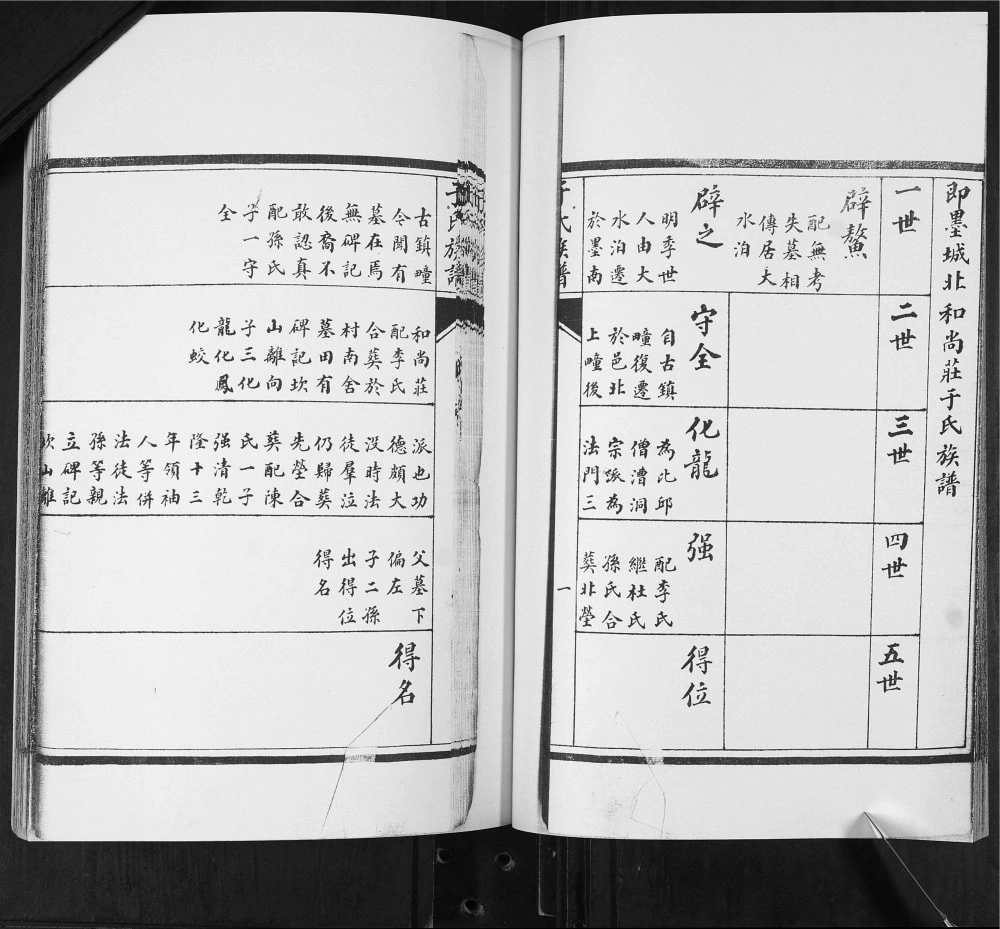 即墨城北和尚莊于氏族譜
一世
二世
三世
四世
五世
辟鰲
配無考
失墓相
傳居大
水泊
辟之
明季世
人由大
水泊遷
於墨南
守全
自古鎮
疃復遷
於邑北
上疃後
化龍
為比邱
僧漕洞
宗派為
法門三
强
配李氏
繼杜氏
孫氏合
葬北塋
得位
于氏族譜
一
于氏族譜
古鎮疃
今聞有
墓在焉
無碑記
後裔不
敢認真
配孫氏
子一守
全
和尚莊
配李氏
合葬於
村南舍
墓田有
碑記坎
山離向
子三化
龍化鳳
化蛟
派也功
德頗大
沒時法
徒羣泣
仍歸葬
先塋合
葬配陳
氏一子
强清乾
隆十三
年領袖
人等併
法徒法
孫等親
立碑記
坎山離
父墓下
偏左
子二孫
出得位
得名
得名